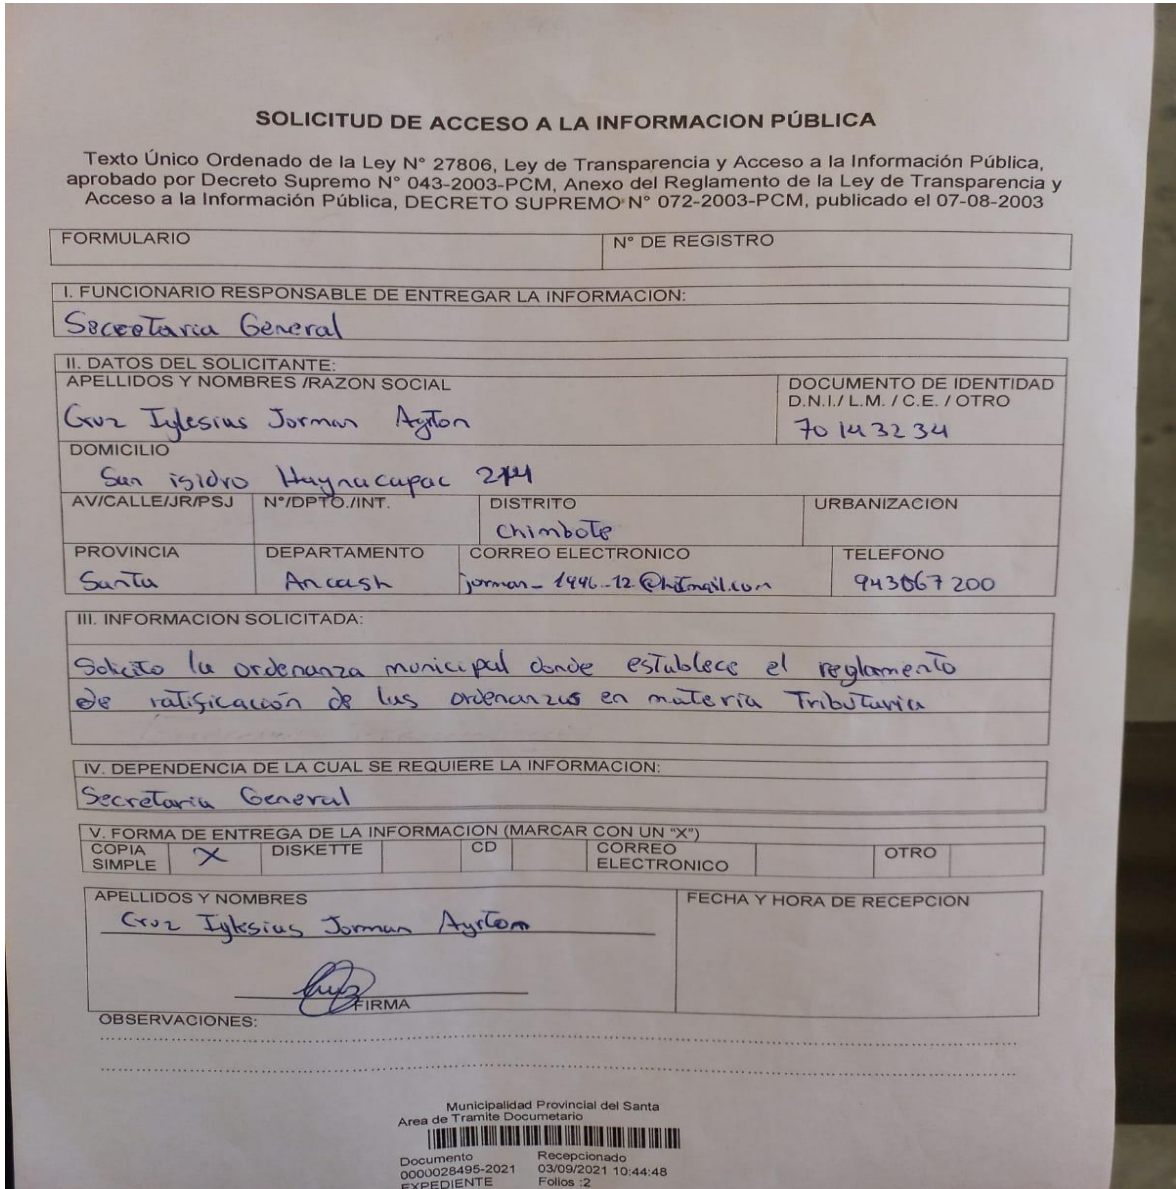 SOLICITUD DE ACCESO A LA INFORMACION PÚBLICA
Texto Único Ordenado de la Ley N° 27806, Ley de Transparencia y Acceso a la Información Pública,
aprobado por Decreto Supremo N° 043-2003-PCM, Anexo del Reglamento de la Ley de Transparencia y
Acceso a la Información Pública, DECRETO SUPREMO N° 072-2003-PCM, publicado el 07-08-2003
FORMULARIO
N° DE REGISTRO
I. FUNCIONARIO RESPONSABLE DE ENTREGAR LA INFORMACION:
Secretaria General
II. DATOS DEL SOLICITANTE:
APELLIDOS Y NOMBRES /RAZON SOCIAL
DOCUMENTO DE IDENTIDAD
D.N.I./ L.M. / C.E. / OTRO
Cruz Iglesias Jorman Ayrton
70143234
DOMICILIO
San isidro Huaynacapac
AV/CALLE/JR/PSJ N°/DPTO./INT. DISTRITO URBANIZACION
Chimbote
PROVINCIA DEPARTAMENTO CORREO ELECTRONICO TELEFONO
Santa Ancash jorman_1996_12@hotmail.com 943067200
III. INFORMACION SOLICITADA:
Solicito la ordenanza municipal donde establece el reglamento
de ratificación de las ordenanzas en materia Tributaria
IV. DEPENDENCIA DE LA CUAL SE REQUIERE LA INFORMACION:
Secretaria General
V. FORMA DE ENTREGA DE LA INFORMACION (MARCAR CON UN "X")
COPIA SIMPLE X DISKETTE CD CORREO ELECTRONICO OTRO
APELLIDOS Y NOMBRES
FECHA Y HORA DE RECEPCION
Cruz Iglesias Jorman Ayrton
FIRMA
OBSERVACIONES:
Municipalidad Provincial del Santa
Area de Tramite Documetario
Documento Recepcionado
0000028495-2021 03/09/2021 10:44:48
EXPEDIENTE Folios :2